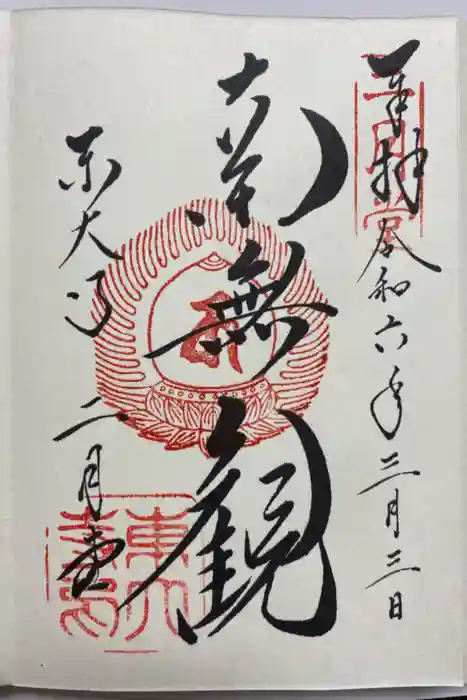 奉拝 令和六年三月三日
南無観
東大寺 二月堂
二月堂
東大寺印